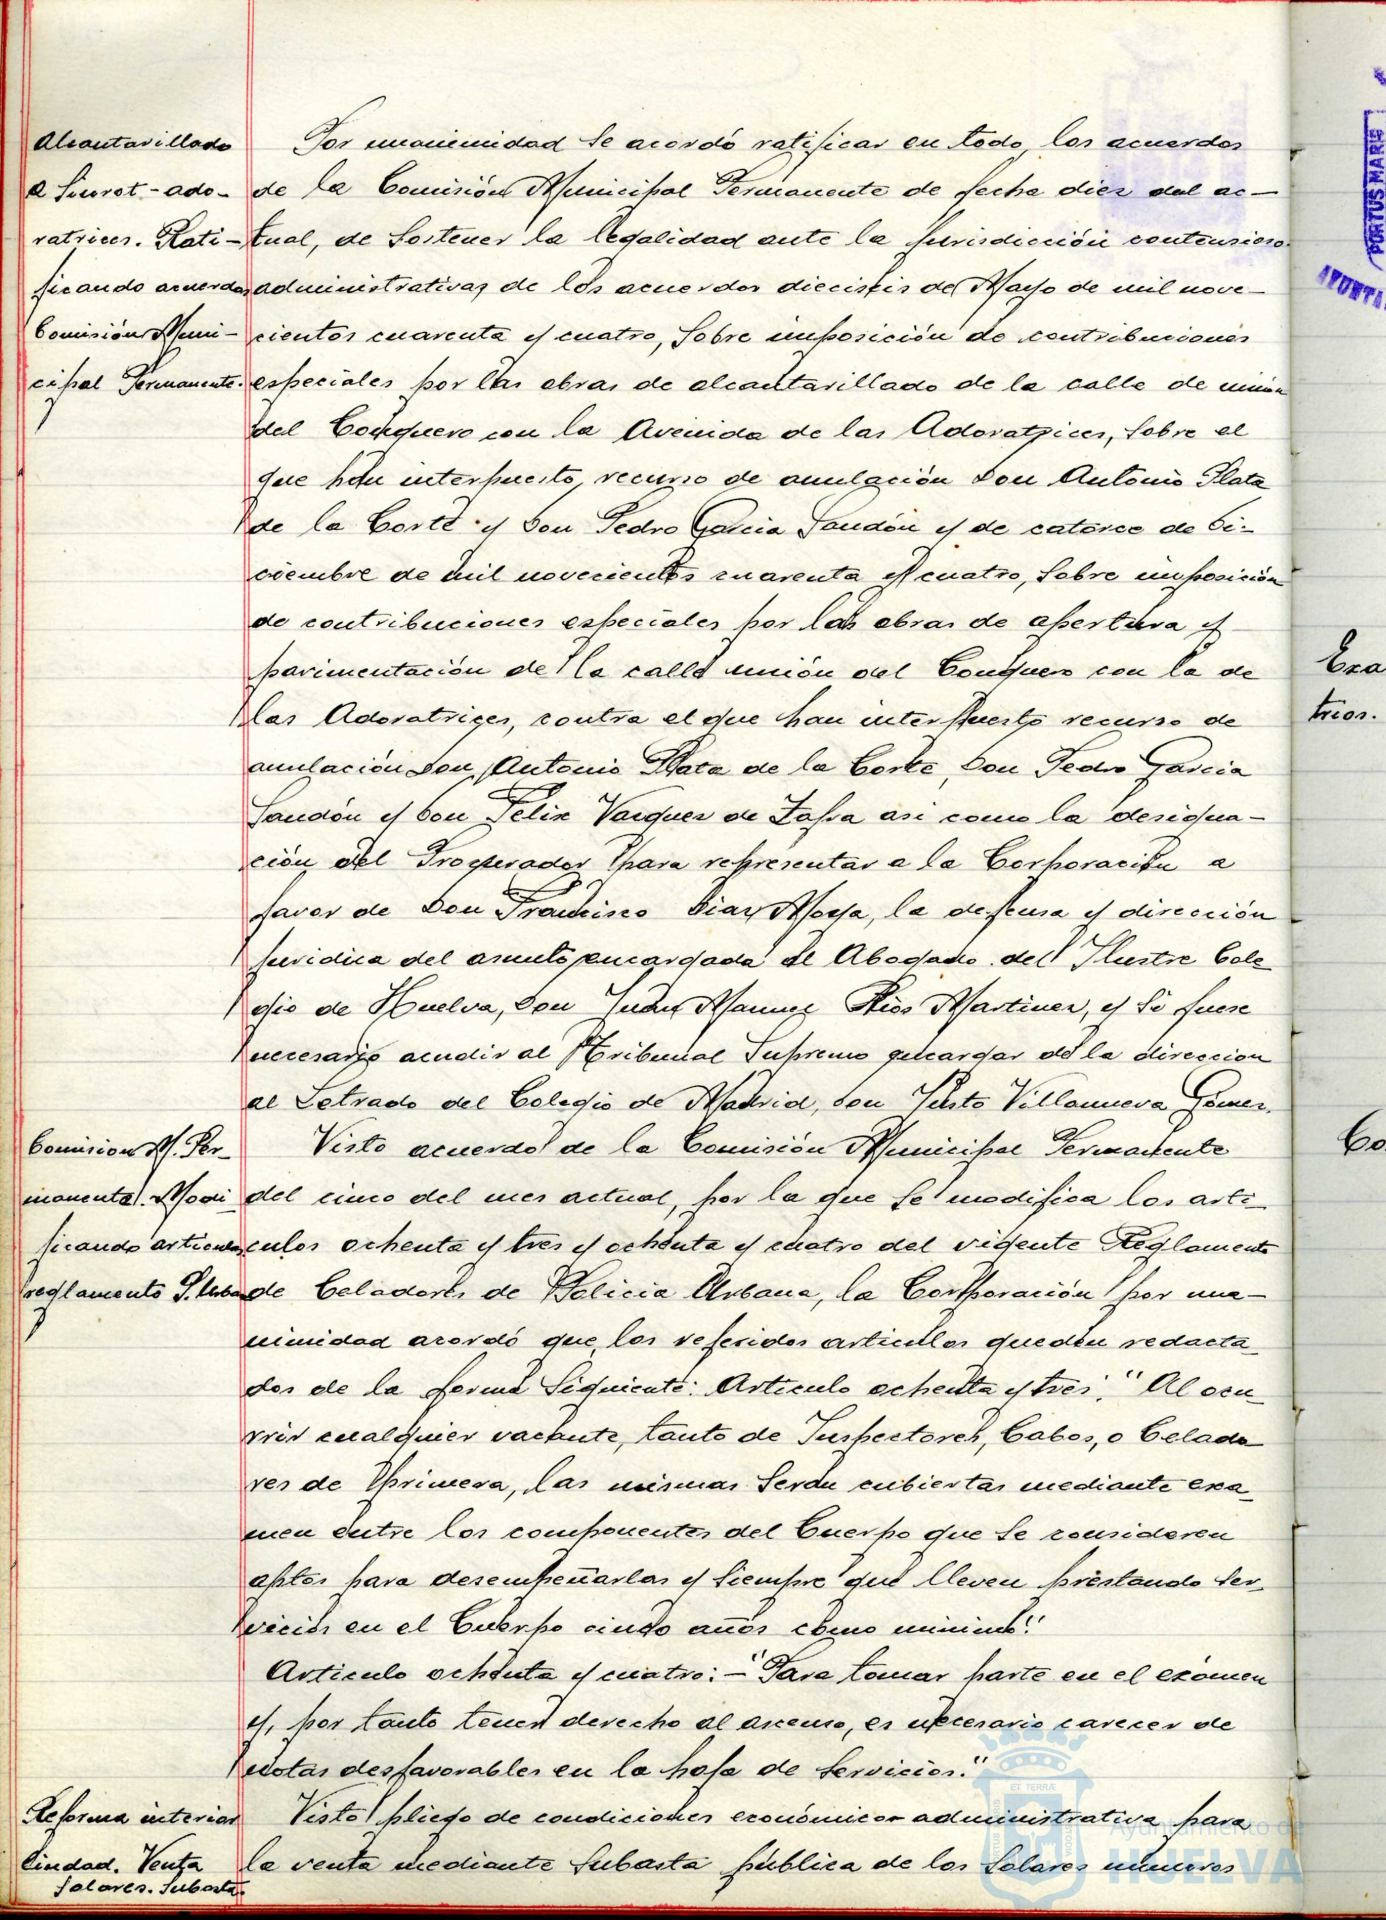 Alcantarillado
a Siurot-ado-
ratrices. Rati-
ficando acuerdos
Comisión Muni-
cipal Permanente.
Por unanimidad se acordó ratificar en todo, los acuerdos
de la Comisión Municipal Permanente de fecha diez del ac-
tual, de sostener la legalidad ante la jurisdicción contencioso
administrativas de los acuerdos dieciseis de Mayo de mil nove-
cientos cuarenta y cuatro, sobre imposición de contribuciones
especiales por las obras de alcantarillado de la calle de unión
del Conquero con la Avenida de las Adoratrices, sobre el
que han interpuesto, recurso de anulación Don Antonio Plata
de la Corte y Don Pedro Garcia Sandón y de catorce de Di-
ciembre de mil novecientos cuarenta y cuatro, sobre imposición
de contribuciones especiales por las obras de apertura y
pavimentación de la calle unión del Conquero con la de
las Adoratrices, contra el que han interpuesto recurso de
anulación Don Antonio Plata de la Corte, Don Pedro Garcia
Sandón y Don Felix Vazquez de Zafra asi como la designa-
ción del Procurador para representar a la Corporación a
favor de Don Francisco Diaz Moya, la defensa y dirección
juridica del asunto encargada al Abogado del Ilustre Cole
gio de Huelva, Don Juan Manuel Rios Martinez, y si fuese
necesario acudir al Tribunal Supremo encargar de la direccion
al Letrado del Colegio de Madrid, Don Justo Villanueva Gómez.
Comision M. Per-
manente. Modi
ficando articulos
reglamento P. Urbana
Visto acuerdo de la Comisión Municipal Permanente
del cinco del mes actual, por la que se modifica los arti-
culos ochenta y tres y ochenta y cuatro del vigente Reglamento
de Celadores de Policia Urbana, la Corporación por una-
nimidad acordó que, los referidos articulos queden redacta
dos de la forma siguiente: Articulo ochenta y tres: "Al ocu-
rrir cualquier vacante, tanto de Inspectores, Cabos, o Celado
res de Primera, las mismas serán cubiertas mediante exa-
men entre los componentes del Cuerpo que se consideren
aptos para desempeñarlas y siempre que lleven prestando ser-
vicios en el Cuerpo cinco años como minimo."
Articulo ochenta y cuatro:-"Para tomar parte en el exámen
y, por tanto tener derecho al ascenso, es necesario carecer de
notas desfavorables en la hoja de servicios."
Reforma interior
Ciudad. Venta
Solares. Subasta.
Visto pliego de condiciones económico-administrativa para
la venta mediante subasta pública de los solares números
PORTUS MARIS
Exa
trios.
Co
Ayuntamiento de
HUELVA